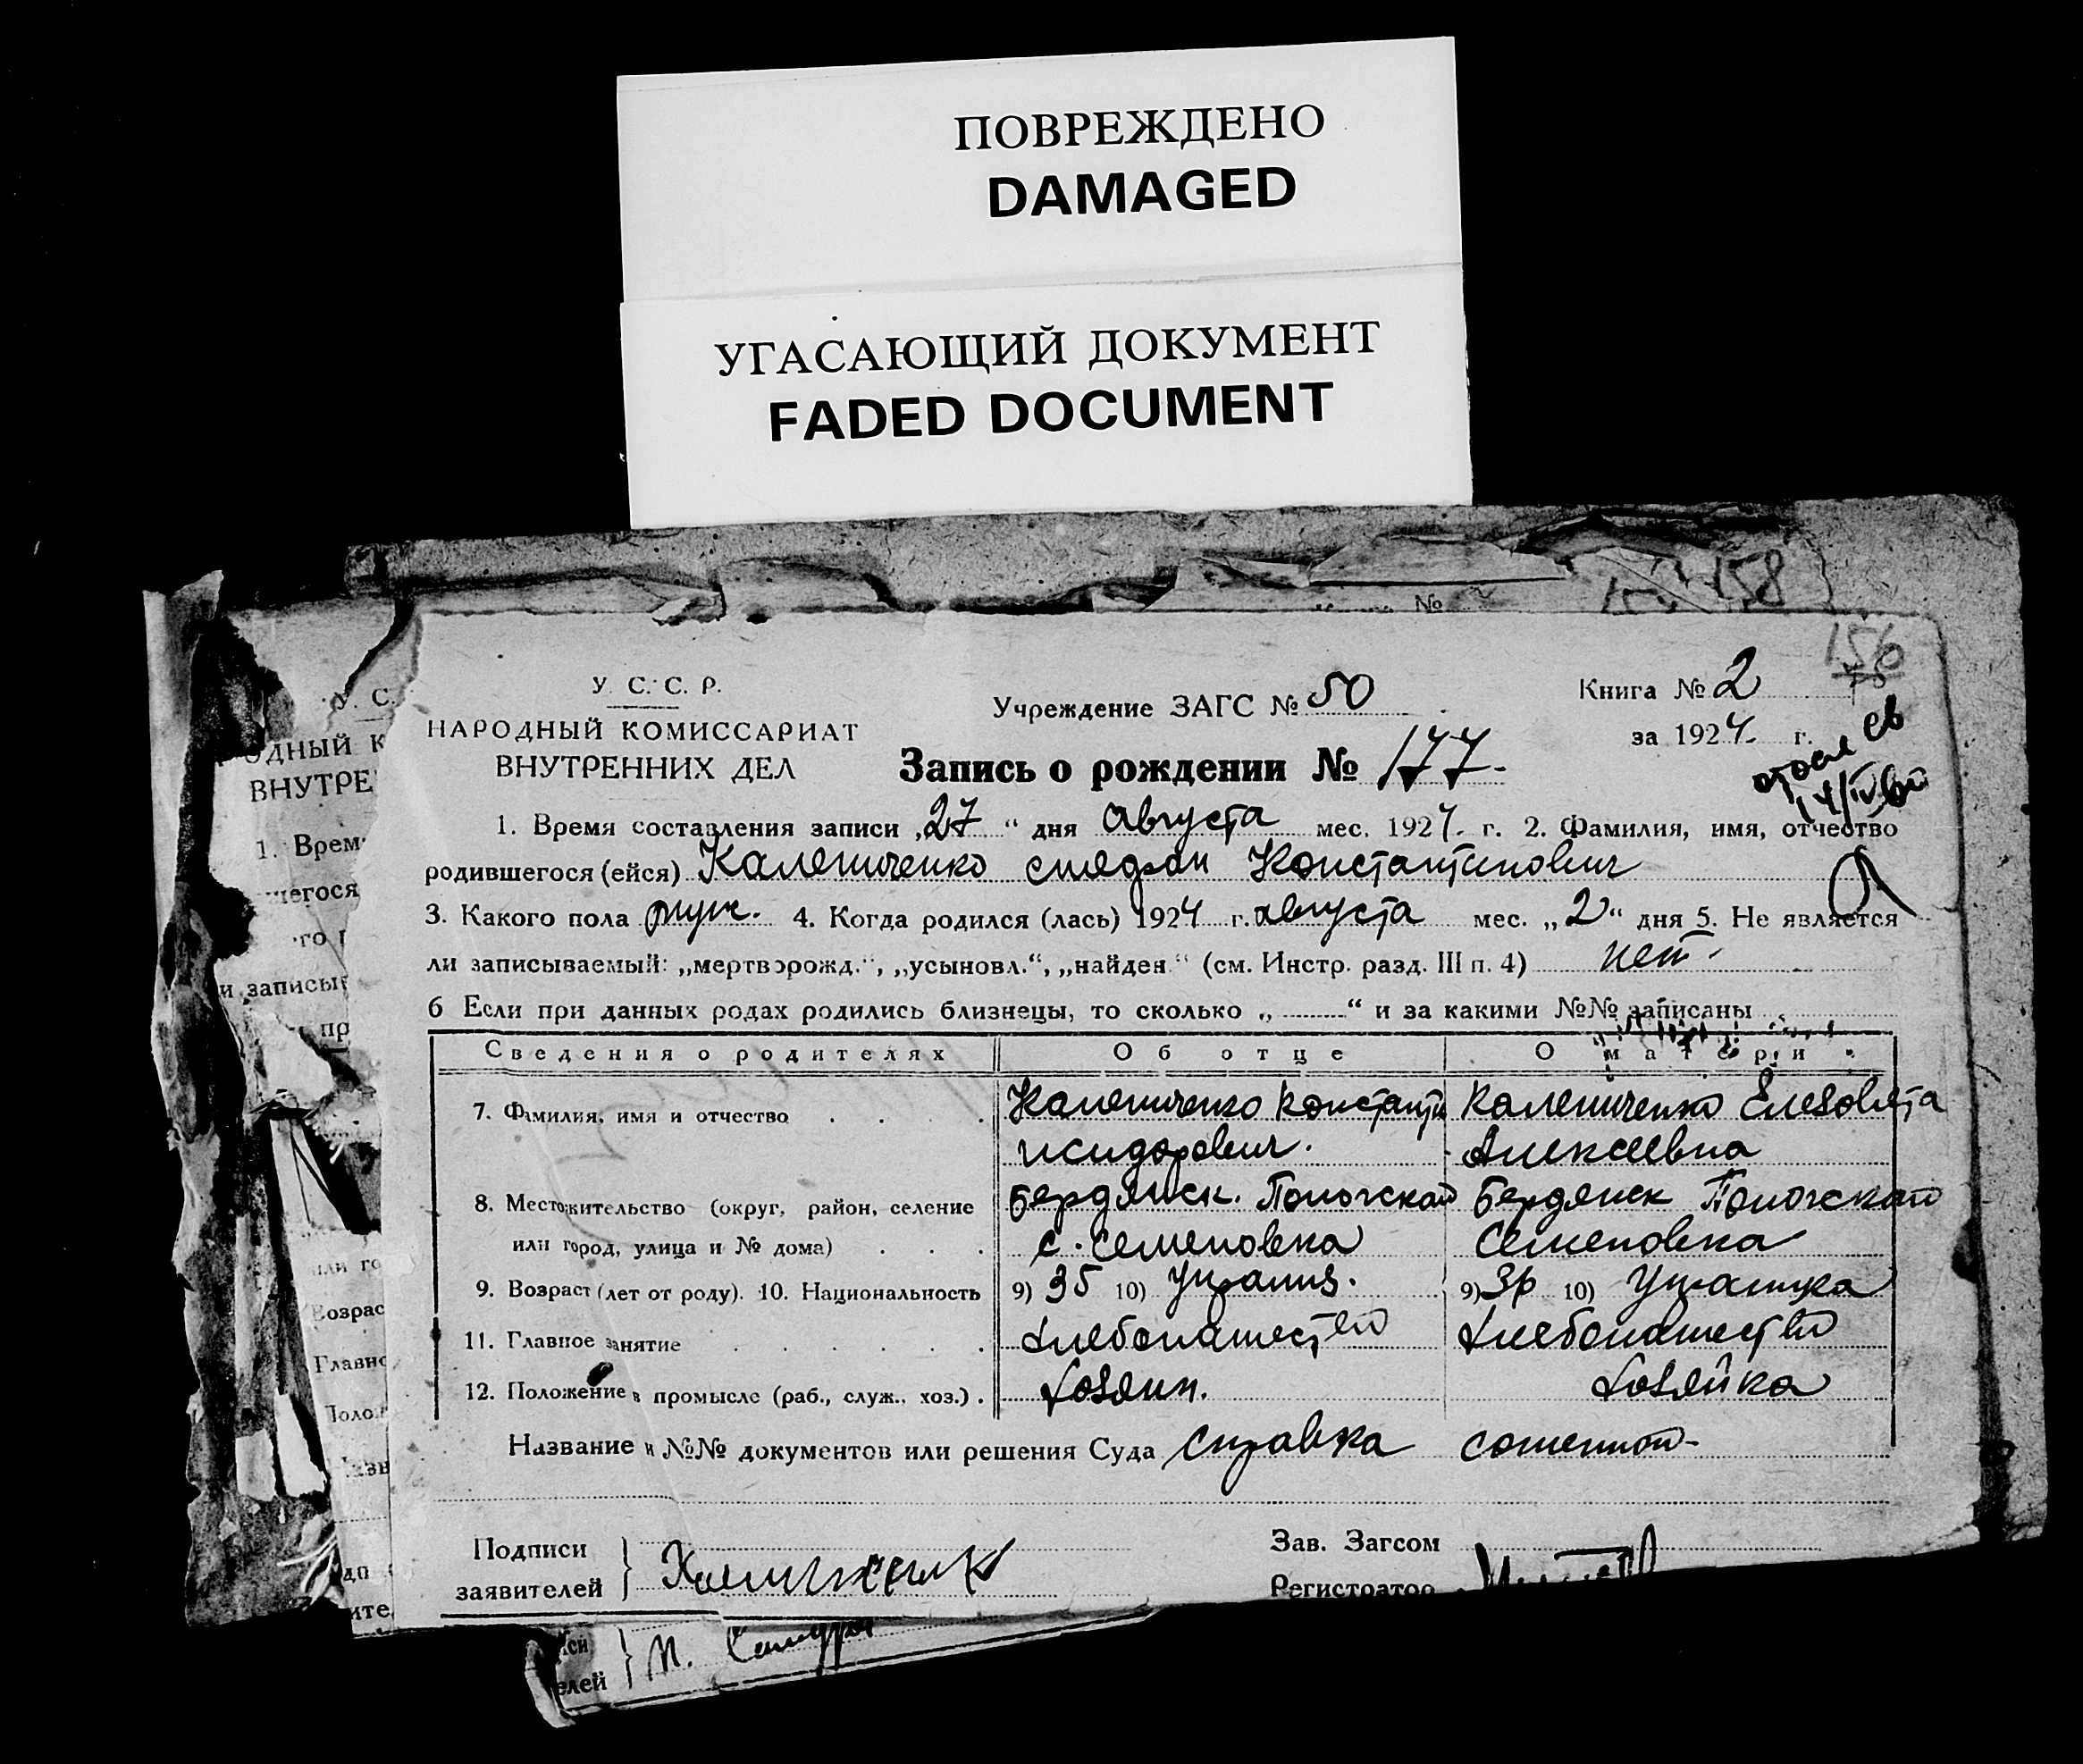 ПОВРЕЖДЕНО
DAMAGED
УГАСАЮЩИЙ ДОКУМЕНТ
FADED DOCUMENT
158
№
156
У. С. С. Р.
НАРОДНЫЙ КОМИССАРИАТ
ВНУТРЕННИХ ДЕЛ
Учреждение ЗАГС № 50
Книга № 2
за 1924 г.
Запись о рождении № 177
1. Время составления записи „27“ дня Августа мес. 1924 г. 2. Фамилия, имя, отчество
родившегося (ейся) Калениченко Стефан Константинович
3. Какого пола муж. 4. Когда родился (лась) 1924 г. августа мес. „2“ дня 5. Не является
ли записываемый: „мертворожд.“, „усыновл.“, „найден“ (см. Инстр. разд. III п. 4) нет
6 Если при данных родах родились близнецы, то сколько „ “ и за какими №№ записаны
Сведения о родителях Об отце О матери
7. Фамилия, имя и отчество Калениченко Константин Калениченко Елезовета
Исидорович. Алексеевна
8. Местожительство (округ, район, селение Бердянск. Пологской Бердянск Пологской
или город, улица и № дома) с. Семеновка Семеновка
9. Возраст (лет от роду). 10. Национальность 9) 35 10) 9) 36 10)
11. Главное занятие Хлебопашество Хлебопашество
12. Положение в промысле (раб., служ., хоз.) Хозяин. Хозяйка
Название и №№ документов или решения Суда Справка
Подписи
заявителей
Зав. Загсом
Регистратор
У. С.
ОДНЫЙ К
ВНУТРЕ
1. Врем
шегося
и записы
пр
или го
Возрас
Главно
Полож
Назв